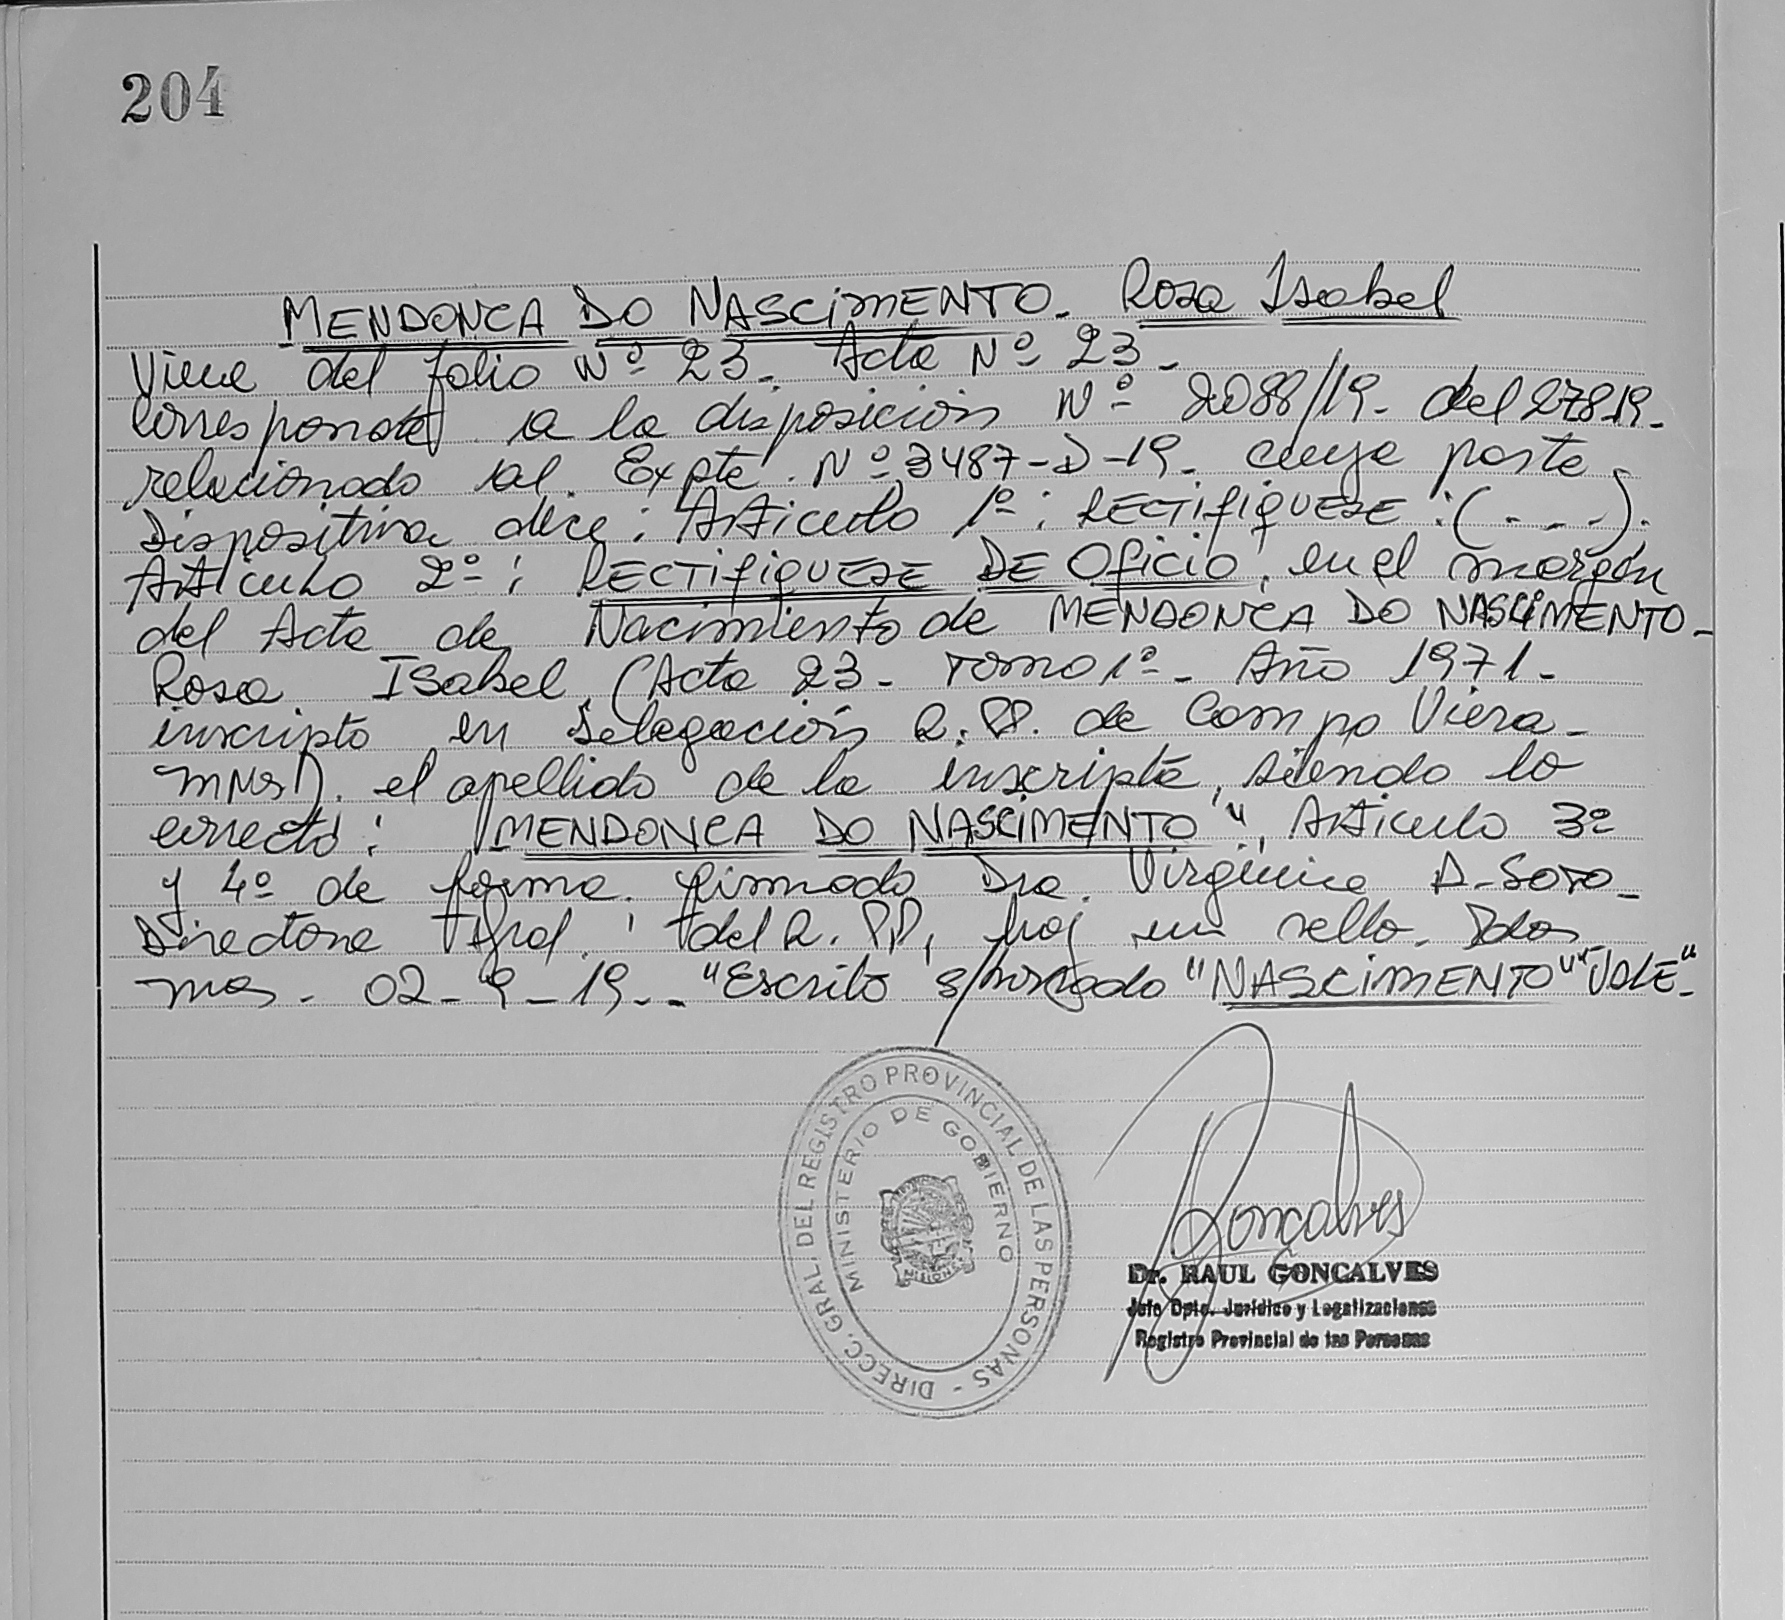 204
MENDONCA DO NASCIMENTO. Rosa Isabel
Viene del folio Nº 23. Acta Nº 23.-
Corresponde a la disposición Nº 2088/19. del 27819.
relacionado al Expte. Nº 3487-D-19. cuya parte
Dispositiva dice: Artículo 1º: RECTIFIQUESE: (...).
Artículo 2º: RECTIFIQUESE DE OFICIO, en el margen
del Acta de Nacimiento de MENDONCA DO NASCIMENTO-
Rosa Isabel (Acta 23. Tomo 1º. Año 1971.
inscripto en Delegación R.PP. de Campo Viera-
mnes). el apellido de la inscripta, siendo lo
correcto: "MENDONCA DO NASCIMENTO". Artículo 3º
y 4º de forma. firmado Dra. Virginia A. Soto-
Directora Gral. del R.PP, hay un sello. Pdas
mes. 02-9-19.- "Escrito s/borrado "NASCIMENTO" "VALE"-
DIRECC. GRAL. DEL REGISTRO PROVINCIAL DE LAS PERSONAS -
MINISTERIO DE GOBIERNO
MISIONES
Gonçalves
Dr. RAUL GONCALVES
Jefe Dpto. Jurídico y Legalizaciones
Registro Provincial de las Personas